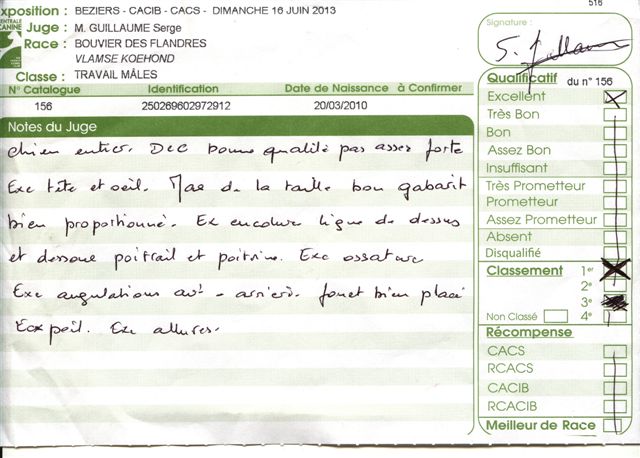 516
xposition : BEZIERS - CACIB - CACS - DIMANCHE 16 JUIN 2013
CENTRALE
CANINE
Juge : M. GUILLAUME Serge
Race : BOUVIER DES FLANDRES
VLAMSE KOEHOND
Classe : TRAVAIL MÂLES
N° Catalogue Identification Date de Naissance à Confirmer
156 250269602972912 20/03/2010
Notes du Juge
chien entier. Dec bonne qualité pas assez forte
Exc tête et oeil. Mae de la taille bon gabarit
bien proportionné. Ex encolure ligne de dessus
et dessous poitrail et poitrine. Exc ossature
Exc angulations avt - arrière. fouet bien placé
Exc poil. Exc allures.
Signature :
Qualificatif du n° 156
Excellent
Très Bon
Bon
Assez Bon
Insuffisant
Très Prometteur
Prometteur
Assez Prometteur
Absent
Disqualifié
Classement 1er
2e
3e
Non Classé 4e
Récompense
CACS
RCACS
CACIB
RCACIB
Meilleur de Race